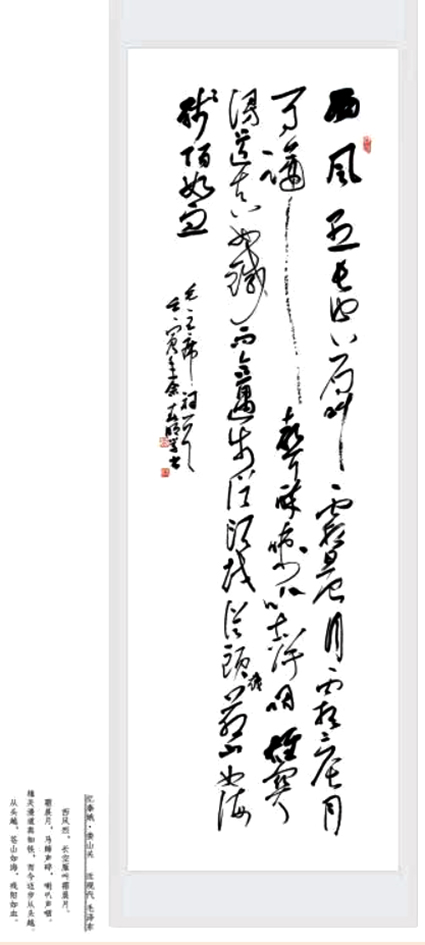 西風烈長空雁叫霜晨月霜晨月
馬蹄聲碎喇叭聲咽雄關
漫道真如鐵而今邁步從頭越從頭越蒼山如海
殘陽如血
毛主席词一首
壬寅年
忆秦娥·娄山关 近现代 毛泽东
西风烈，长空雁叫霜晨月。
霜晨月，马蹄声碎，喇叭声咽。
雄关漫道真如铁，而今迈步从头越。
从头越，苍山如海，残阳如血。